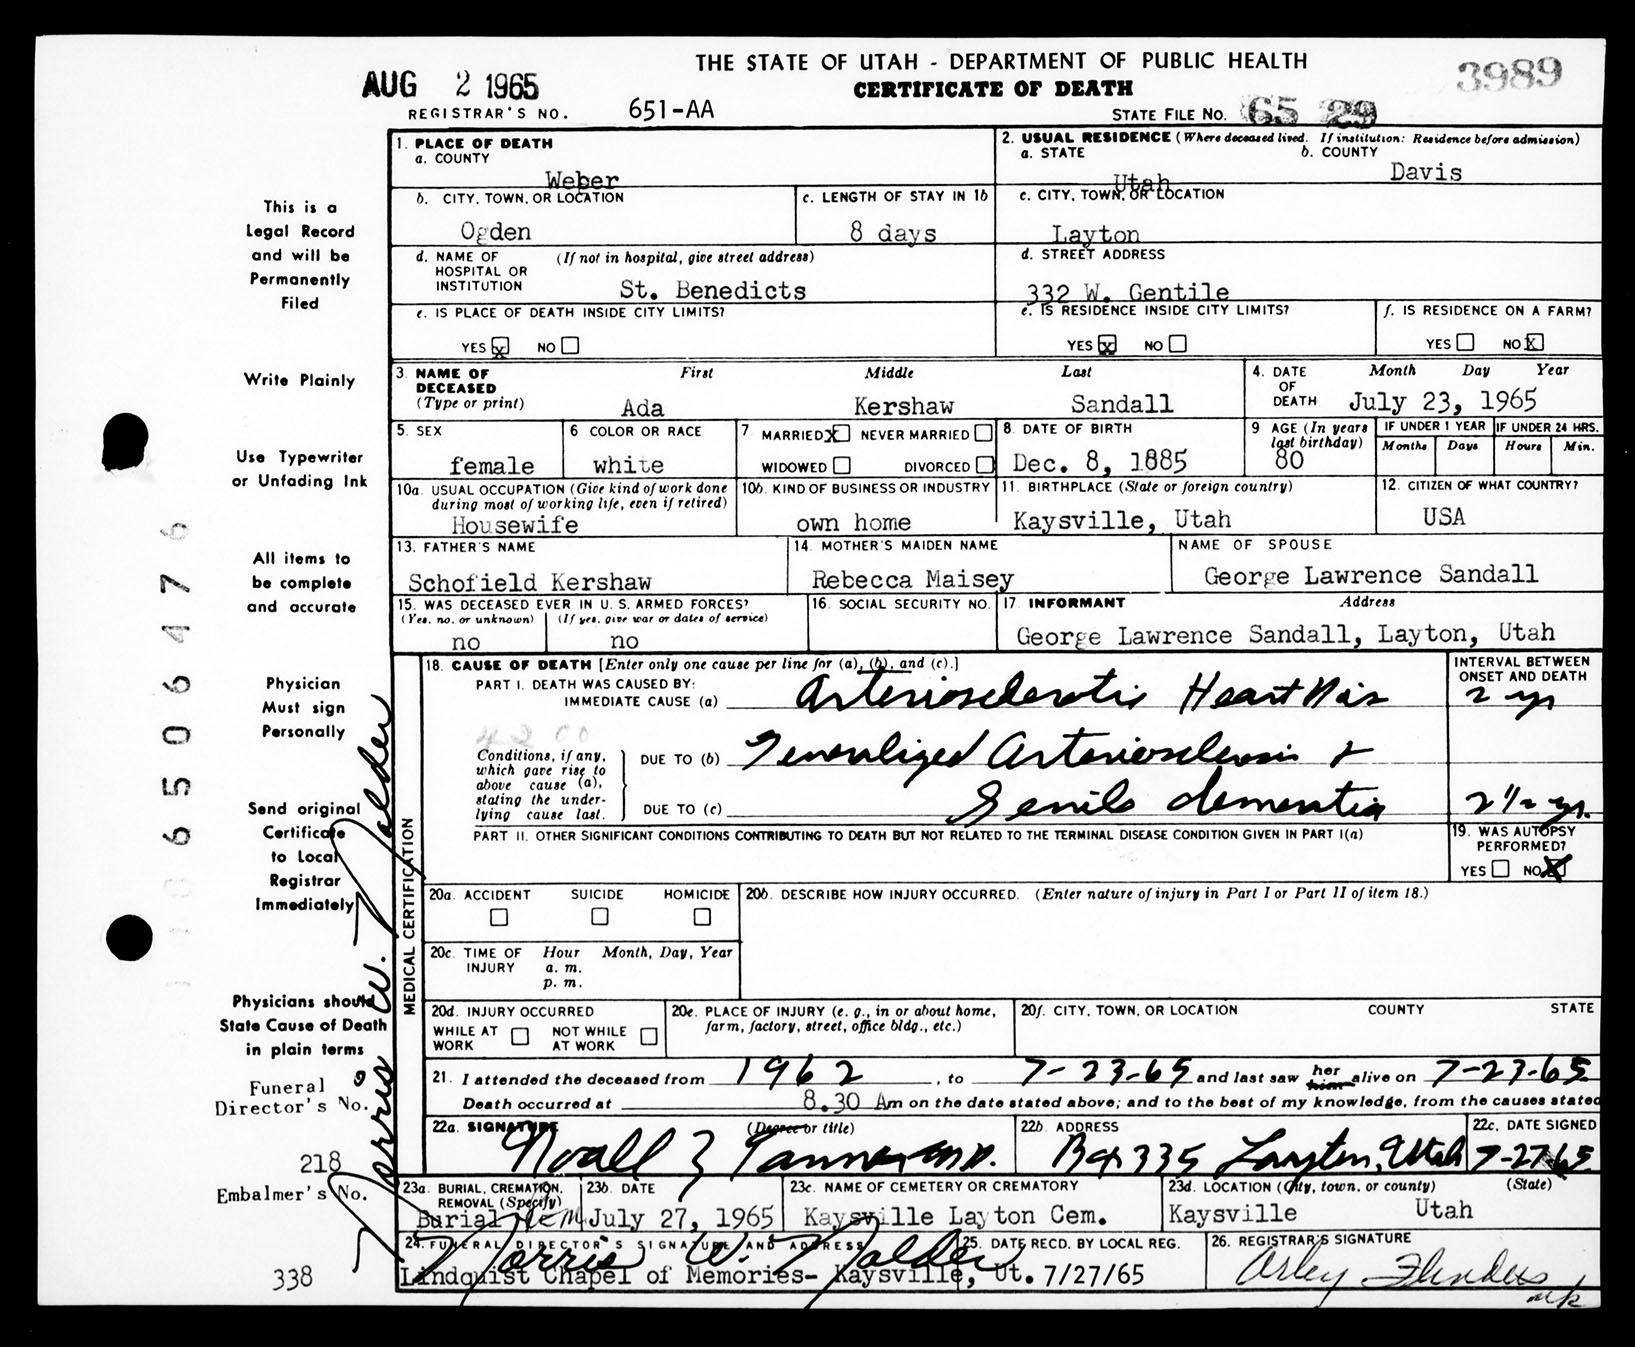 THE STATE OF UTAH - DEPARTMENT OF PUBLIC HEALTH
CERTIFICATE OF DEATH
3989
AUG 2 1965
REGISTRAR'S NO. 651-AA
STATE FILE NO. 65 29
This is a
Legal Record
and will be
Permanently
Filed
Write Plainly
Use Typewriter
or Unfading Ink
All items to
be complete
and accurate
Physician
Must sign
Personally
Send original
Certificate
to Local
Registrar
Immediately
Physicians should
State Cause of Death
in plain terms
Funeral
Director's No.
218
Embalmer's No.
338
Norris W. Nalder
1. PLACE OF DEATH
a. COUNTY
Weber
2. USUAL RESIDENCE (Where deceased lived. If institution: Residence before admission)
a. STATE b. COUNTY
Utah Davis
b. CITY, TOWN, OR LOCATION
Ogden
c. LENGTH OF STAY IN 1b
8 days
c. CITY, TOWN, OR LOCATION
Layton
d. NAME OF (If not in hospital, give street address)
HOSPITAL OR
INSTITUTION St. Benedicts
d. STREET ADDRESS
332 W. Gentile
e. IS PLACE OF DEATH INSIDE CITY LIMITS?
YES X NO
e. IS RESIDENCE INSIDE CITY LIMITS?
YES X NO
f. IS RESIDENCE ON A FARM?
YES NO X
3. NAME OF First Middle Last
DECEASED
(Type or print) Ada Kershaw Sandall
4. DATE Month Day Year
OF
DEATH July 23, 1965
5. SEX
female
6 COLOR OR RACE
white
7 MARRIED X NEVER MARRIED
WIDOWED DIVORCED
8. DATE OF BIRTH
Dec. 8, 1885
9 AGE (In years
last birthday)
80
IF UNDER 1 YEAR
Months Days
IF UNDER 24 HRS.
Hours Min.
10a. USUAL OCCUPATION (Give kind of work done
during most of working life, even if retired)
Housewife
10b. KIND OF BUSINESS OR INDUSTRY
own home
11. BIRTHPLACE (State or foreign country)
Kaysville, Utah
12. CITIZEN OF WHAT COUNTRY?
USA
13. FATHER'S NAME
Schofield Kershaw
14. MOTHER'S MAIDEN NAME
Rebecca Maisey
NAME OF SPOUSE
George Lawrence Sandall
15. WAS DECEASED EVER IN U. S. ARMED FORCES?
(Yes, no, or unknown) (If yes, give war or dates of service)
no no
16. SOCIAL SECURITY NO.
17. INFORMANT Address
George Lawrence Sandall, Layton, Utah
MEDICAL CERTIFICATION
18. CAUSE OF DEATH [Enter only one cause per line for (a), (b), and (c).]
PART I. DEATH WAS CAUSED BY:
IMMEDIATE CAUSE (a) Arteriosclerotic Heart Dis
INTERVAL BETWEEN
ONSET AND DEATH
2 yr
4200
Conditions, if any,
which gave rise to
above cause (a),
stating the under-
lying cause last.
DUE TO (b) Generalized Arteriosclerosis &
DUE TO (c) Senile dementia 2 1/2 yr.
PART II. OTHER SIGNIFICANT CONDITIONS CONTRIBUTING TO DEATH BUT NOT RELATED TO THE TERMINAL DISEASE CONDITION GIVEN IN PART I(a)
19. WAS AUTOPSY
PERFORMED?
YES NO X
20a. ACCIDENT SUICIDE HOMICIDE
20b. DESCRIBE HOW INJURY OCCURRED. (Enter nature of injury in Part I or Part II of item 18.)
20c. TIME OF Hour Month, Day, Year
INJURY a. m.
p. m.
20d. INJURY OCCURRED
WHILE AT NOT WHILE
WORK AT WORK
20e. PLACE OF INJURY (e. g., in or about home,
farm, factory, street, office bldg., etc.)
20f. CITY, TOWN, OR LOCATION COUNTY STATE
21. I attended the deceased from 1962, to 7-23-65 and last saw her him alive on 7-23-65.
Death occurred at 8.30 Am on the date stated above; and to the best of my knowledge, from the causes stated
22a. SIGNATURE (Degree or title)
Noall Z Tanner M.D.
22b. ADDRESS
Box 335 Layton, Utah
22c. DATE SIGNED
7-27-65
23a. BURIAL, CREMATION,
REMOVAL (Specify)
Burial Rem
23b. DATE
July 27, 1965
23c. NAME OF CEMETERY OR CREMATORY
Kaysville Layton Cem.
23d. LOCATION (City, town, or county) (State)
Kaysville Utah
24. FUNERAL DIRECTOR'S SIGNATURE AND ADDRESS
Norris W. Nalder
Lindquist Chapel of Memories- Kaysville, Ut.
25. DATE RECD. BY LOCAL REG.
7/27/65
26. REGISTRAR'S SIGNATURE
Arley Flinders
mk
06506476